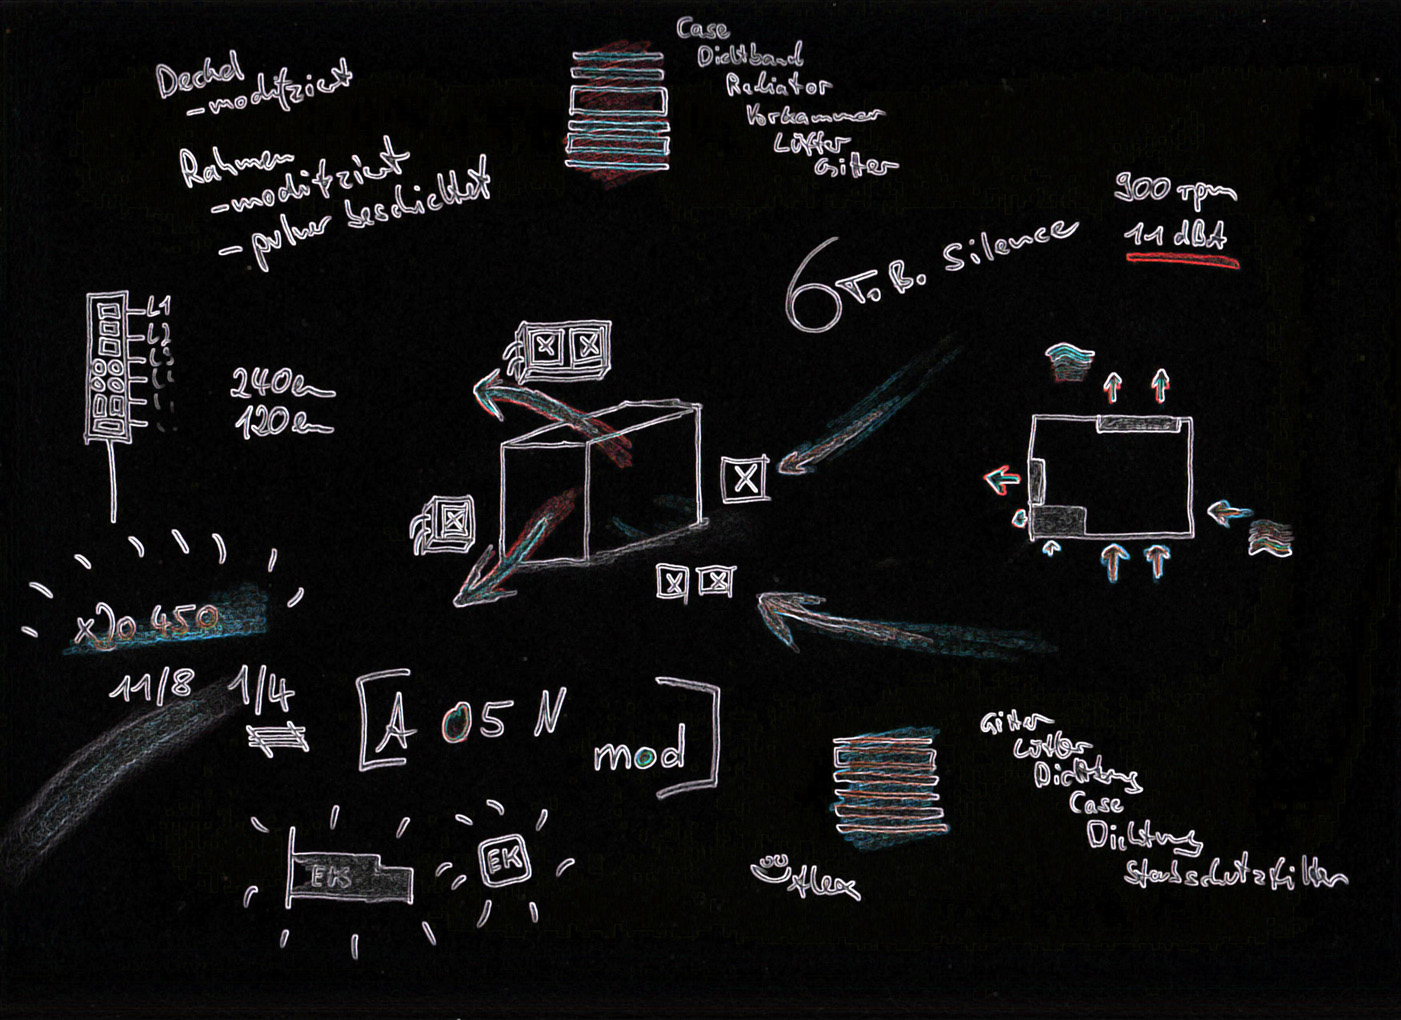 Case
Dichtband
Radiator
Vorkammer
Lüfter
Gitter
Deckel
- modifiziert
Rahmen
- modifiziert
- pulverbeschichtet
900 rpm
11 dBA
6 T.B. Silence
L1
L2
L3
X X
240
120
X
X
X X
450
11/8 1/4
[A 05 N
mod]
EK
Gitter
Lüfter
Dichtung
Case
Dichtung
Staubschutzfilter
Alex